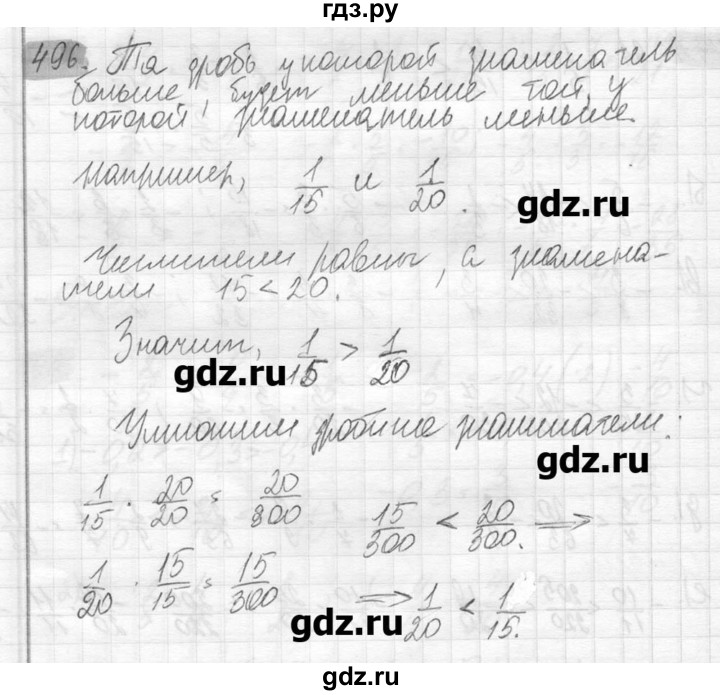 гдз.ру
496. Та дробь у которой знаменатель
больше, будет меньше той, у
которой знаменатель меньше.
Например, 1/15 и 1/20.
gdz.ru
Числители равны, а знамена-
тели 15 < 20.
Значит, 1/15 > 1/20
gdz.ru
Умножим дробные знаменатели:
gdz.ru
1/15 · 20/20 = 20/300 15/300 < 20/300. ⟹
1/20 · 15/15 = 15/300 ⟹ 1/20 < 1/15.
gdz.ru
gdz.ru